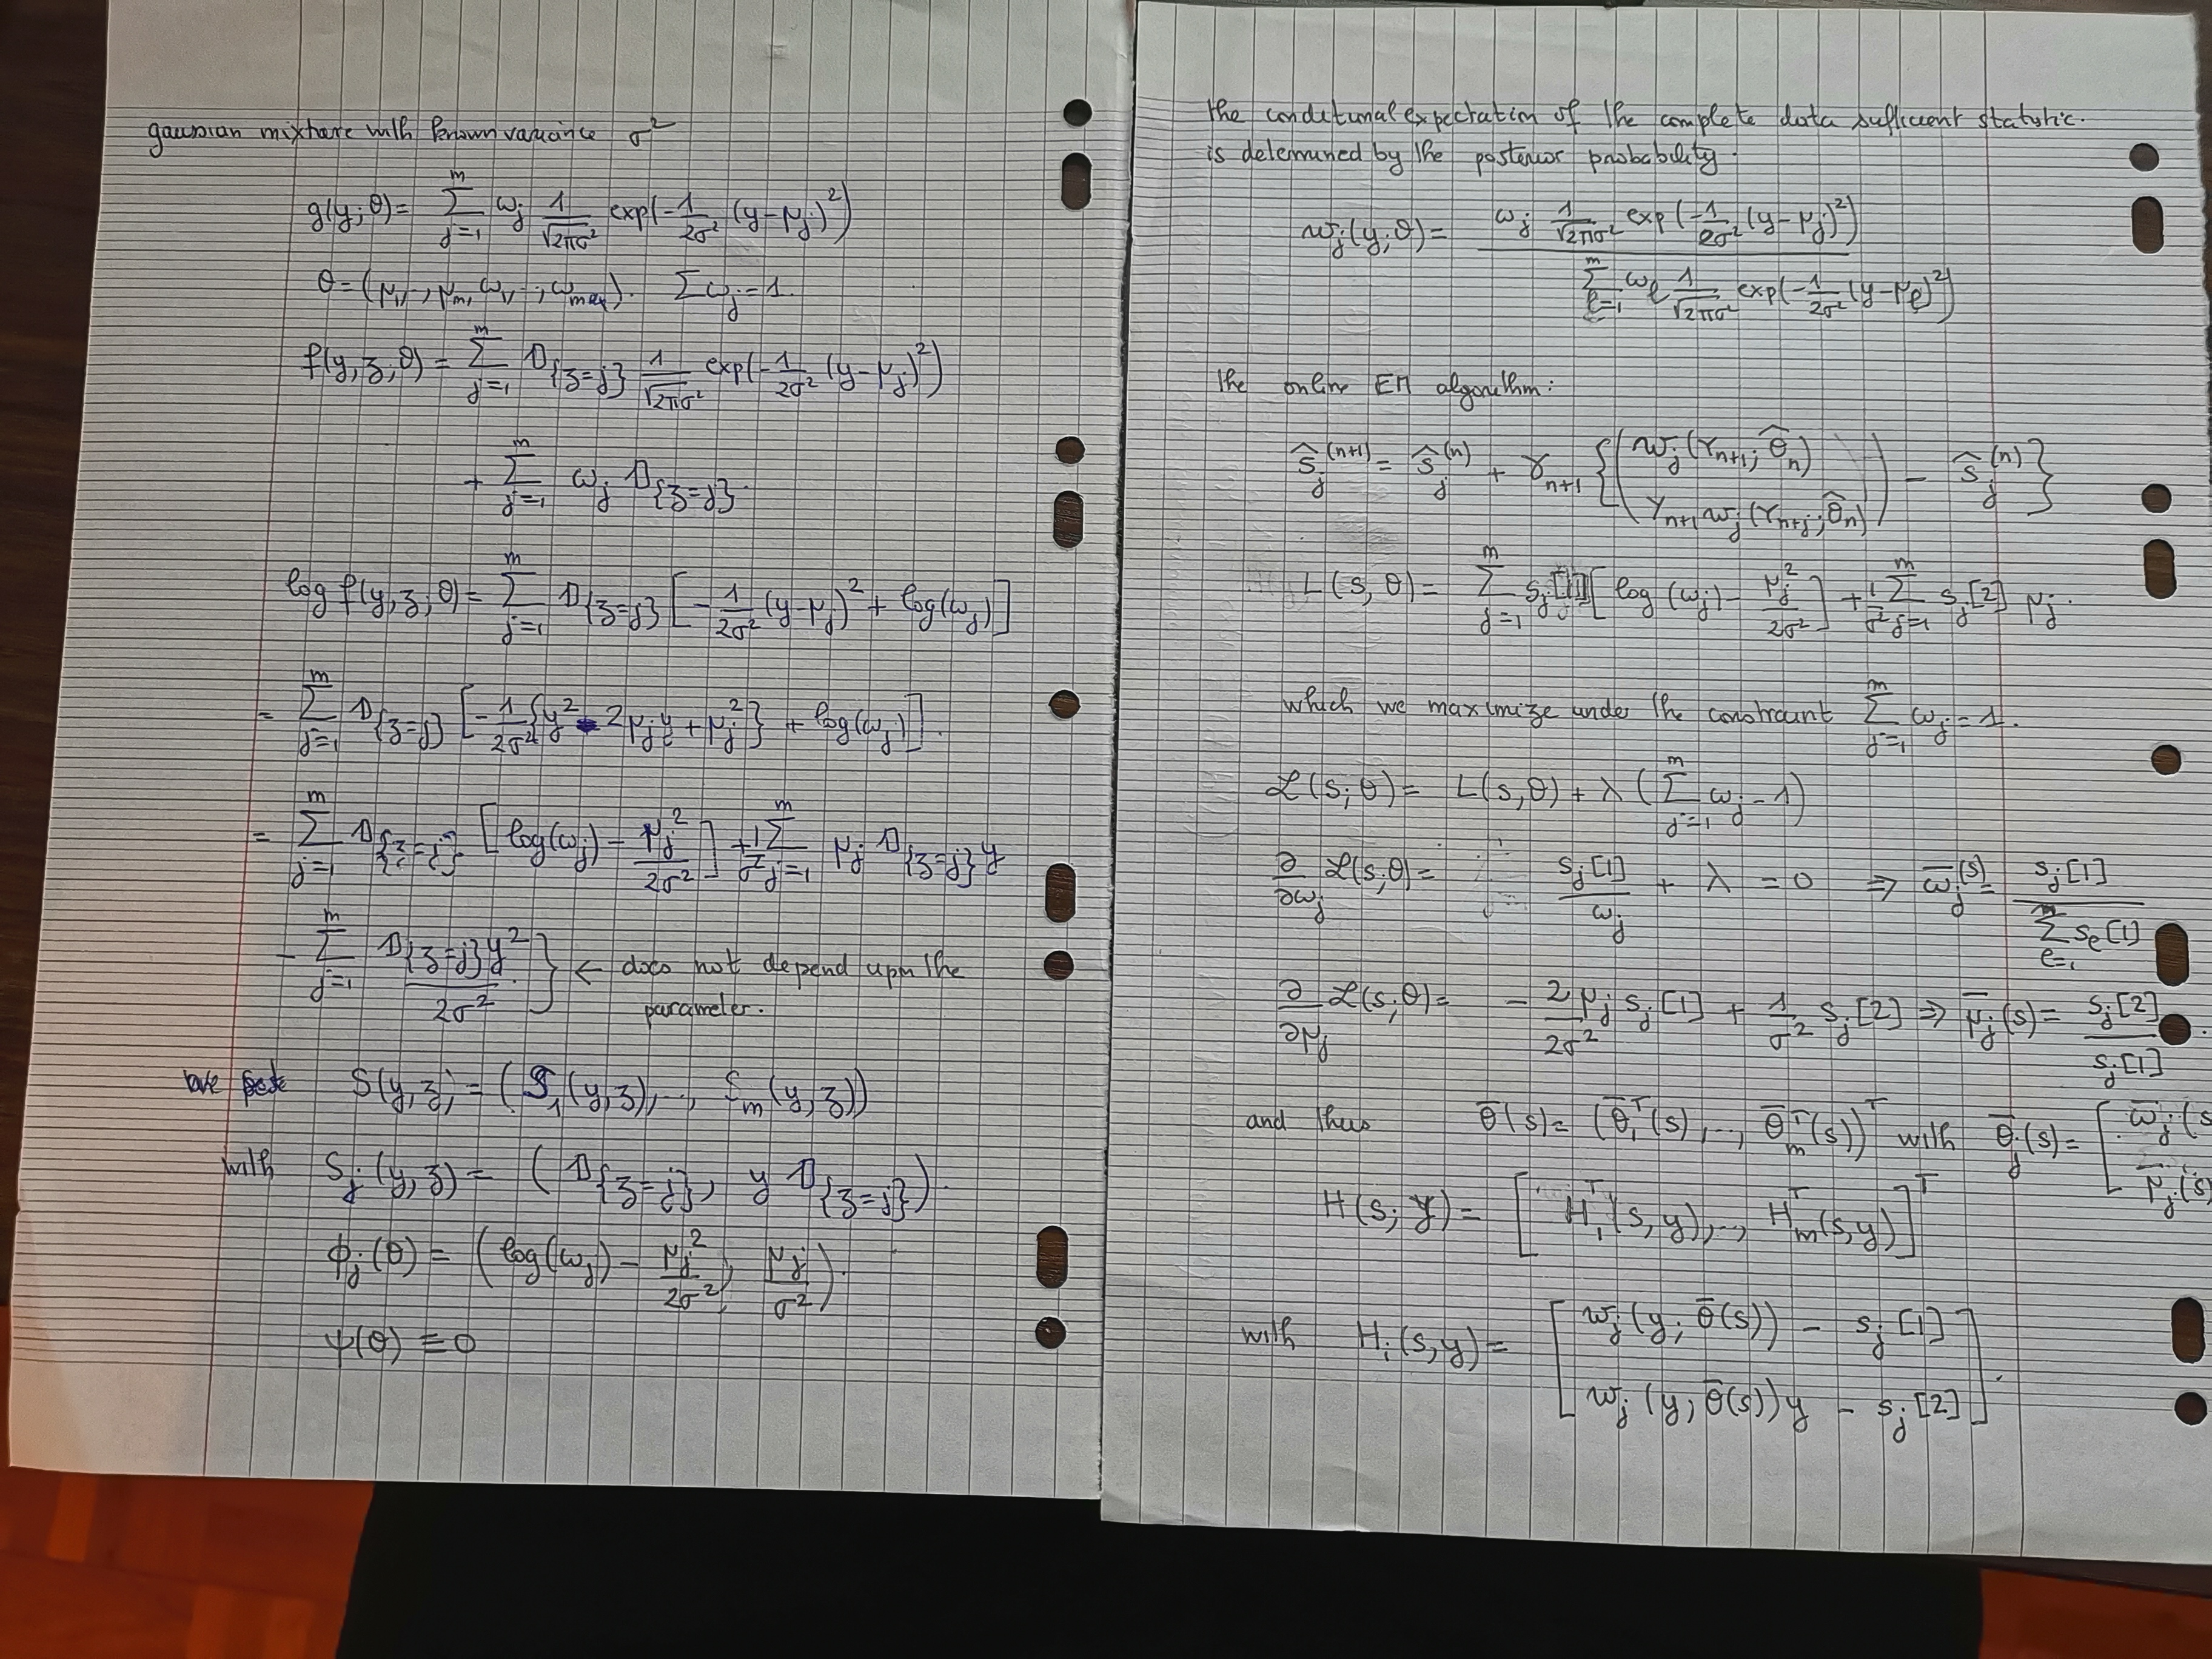 gaussian mixture with known variance σ²
g(y;θ) = Σ_{j=1}^{m} ω_j 1/√(2πσ²) exp(-1/(2σ²) (y-μ_j)²)
θ = (μ_1, .., μ_m, ω_1, .., ω_m). Σω_j = 1.
f(y,z,θ) = Σ_{j=1}^{m} 𝟙_{z=j} 1/√(2πσ²) exp(-1/(2σ²) (y-μ_j)²)
+ Σ_{j=1}^{m} ω_j 𝟙_{z=j}.
log f(y,z;θ) = Σ_{j=1}^{m} 𝟙_{z=j} [-1/(2σ²) (y-μ_j)² + log(ω_j)]
= Σ_{j=1}^{m} 𝟙_{z=j} [-1/(2σ²) {y² - 2μ_j y + μ_j²} + log(ω_j)].
= Σ_{j=1}^{m} 𝟙_{z=j} [log(ω_j) - μ_j²/(2σ²)] + 1/σ² Σ_{j=1}^{m} μ_j 𝟙_{z=j} y
- Σ_{j=1}^{m} 𝟙_{z=j} y²/(2σ²) } ← does not depend upon the
parameter.
S(y,z) = (S_1(y,z), .., S_m(y,z))
with S_j(y,z) = (𝟙_{z=j}, y 𝟙_{z=j}).
ϕ_j(θ) = (log(ω_j) - μ_j²/(2σ²), μ_j/σ²).
ψ(θ) ≡ 0
the conditional expectation of the complete data sufficient statistic.
is determined by the posterior probability.
w_j(y;θ) = ω_j 1/√(2πσ²) exp(-1/(2σ²) (y-μ_j)²) / Σ_{ℓ=1}^{m} ω_ℓ 1/√(2πσ²) exp(-1/(2σ²) (y-μ_ℓ)²)
the online EM algorithm:
ŝ_j^{(n+1)} = ŝ_j^{(n)} + γ_{n+1} { ( w_j(Y_{n+1}; θ̂_n)
Y_{n+1} w_j(Y_{n+1}; θ̂_n) ) - ŝ_j^{(n)} }
L(s,θ) = Σ_{j=1}^{m} s_j[1] [log(ω_j) - μ_j²/(2σ²)] + 1/σ² Σ_{j=1}^{m} s_j[2] μ_j.
which we maximize under the constraint Σ_{j=1}^{m} ω_j = 1.
ℒ(s;θ) = L(s,θ) + λ (Σ_{j=1}^{m} ω_j - 1)
∂/∂ω_j ℒ(s;θ) = s_j[1]/ω_j + λ = 0 ⇒ ω̄_j(s) = s_j[1] / Σ_{ℓ=1}^{m} s_ℓ[1]
∂/∂μ_j ℒ(s;θ) = - 2/(2σ²) μ_j s_j[1] + 1/σ² s_j[2] ⇒ μ̄_j(s) = s_j[2]/s_j[1].
and thus θ̄(s) = (θ̄_1^T(s), .., θ̄_m^T(s))^T with θ̄_j(s) = [ ω̄_j(s
μ̄_j(s)
H(s;y) = [H_1^T(s,y), .., H_m^T(s,y)]^T
with H_i(s,y) = [ w_j(y; θ̄(s)) - s_j[1]
w_j(y; θ̄(s))y - s_j[2] ].